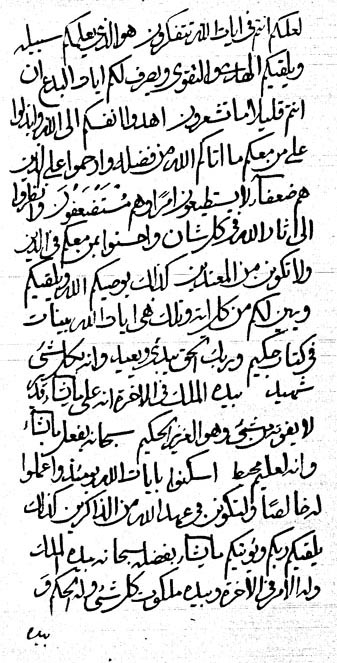 لعلكم انتم فى ايات الله تتفكرون هو الذى يعلمكم سبيله
ويلقيكم الهدى والتقوى ويصرف لكم ايات البلاغ ان
انتم قليلا ما تشعرون اهدوا انفسكم الى الله وابذلوا
على من معكم ما اتاكم الله من فضله وارحموا على الذين
هم ضعفآء لا يستطيعون امرا وهم مستضعفون وانظروا
الى الله فى كل شان واحسنوا بمن معكم فى الدين
ولا تكونن من المعتدين كذلك يوصيكم الله ويلقيكم
ويبين لكم من كل اية وتلك هى ايات الله بينات
فى كتاب حكيم وربك الحق يبدء ويعيد وانه بكل شئ
شهيد بيده الملك فى الاخرة انه على ما يشآء قدير
لا يفوته من شئ وهو العزيز الحكيم سبحانه يفعل ما يشآء
وانه لعليم محيط اسكنوا بايات الله يومئذ واعملوا
له خالصاً ولتكونن فى عهد الله من الذاكرين كذلك
يلقيكم ربكم ويؤتيكم ما يشآء بفضله سبحانه بيده الملك
وله الامر فى الاخرة وبيده ملكوت كل شئ وله الحكم و
بيده